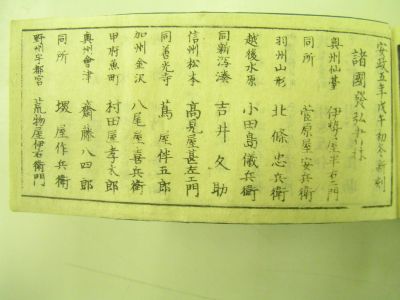 安政五年戊午初冬新刻
諸國發弘書林
奥州仙臺 伊勢屋半右エ門
同所 菅原屋安兵衛
羽州山形 北條忠兵衛
越後水原 小田島儀兵衛
同新潟湊 吉井久助
信州松本 高見屋甚左エ門
同善光寺 蔦屋伴五郎
加州金沢 八尾屋喜兵衛
甲府魚町 村田屋孝太郎
奥州會津 齋藤八四郎
同所 堺屋作兵衛
野州宇都宮 荒物屋伊右衛門